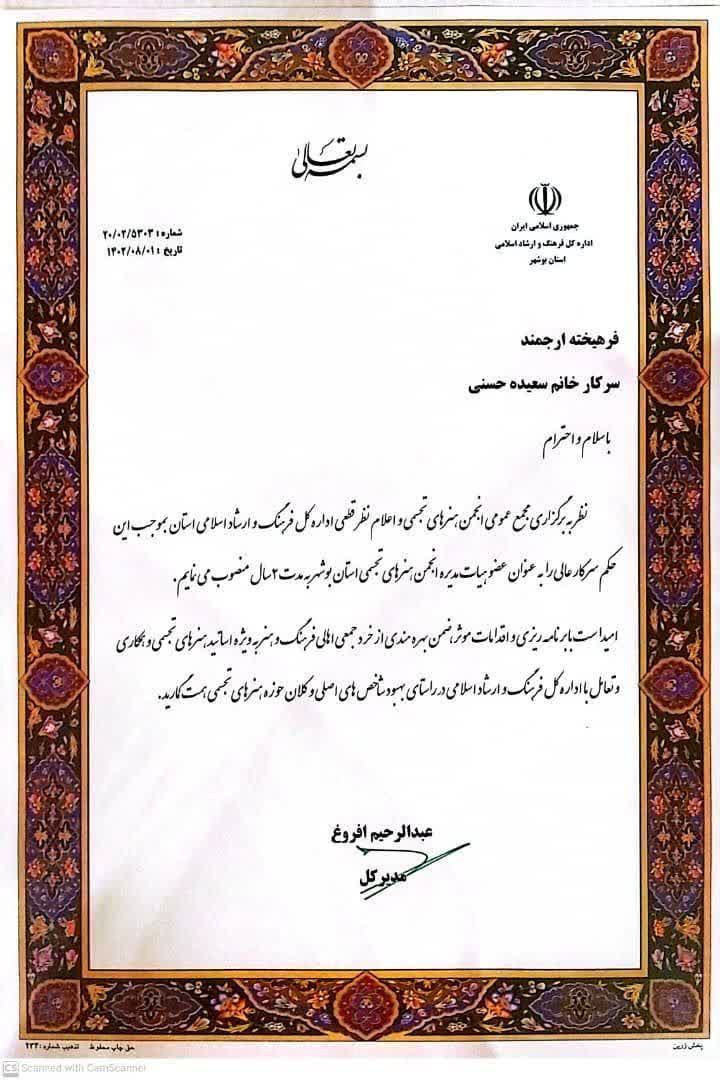 بسمه تعالی
جمهوری اسلامی ایران
اداره کل فرهنگ و ارشاد اسلامی
استان بوشهر
شماره : ۲۰/۰۲/۵۳۰۳
تاریخ : ۱۴۰۲/۰۸/۰۱
فرهیخته ارجمند
سرکار خانم سعیده حسنی
باسلام و احترام
نظر به برگزاری مجمع عمومی انجمن هنرهای تجسمی و اعلام نظر قطعی اداره کل فرهنگ و ارشاد اسلامی استان بموجب این
حکم سرکار عالی را به عنوان عضو هیات مدیره انجمن هنرهای تجسمی استان بوشهر به مدت ۲ سال منصوب می نمایم.
امید است با برنامه ریزی و اقدامات موثر، ضمن بهره مندی از خرد جمعی اهالی فرهنگ و هنر به ویژه اساتید هنرهای تجسمی و همکاری
و تعامل با اداره کل فرهنگ و ارشاد اسلامی در راستای بهبود شاخص های اصلی و کلان حوزه هنرهای تجسمی همت گمارید.
عبدالرحیم افروغ
مدیر کل
پخش زرین
حق چاپ محفوظ تذهیب شماره : ۲۳۴
CS Scanned with CamScanner